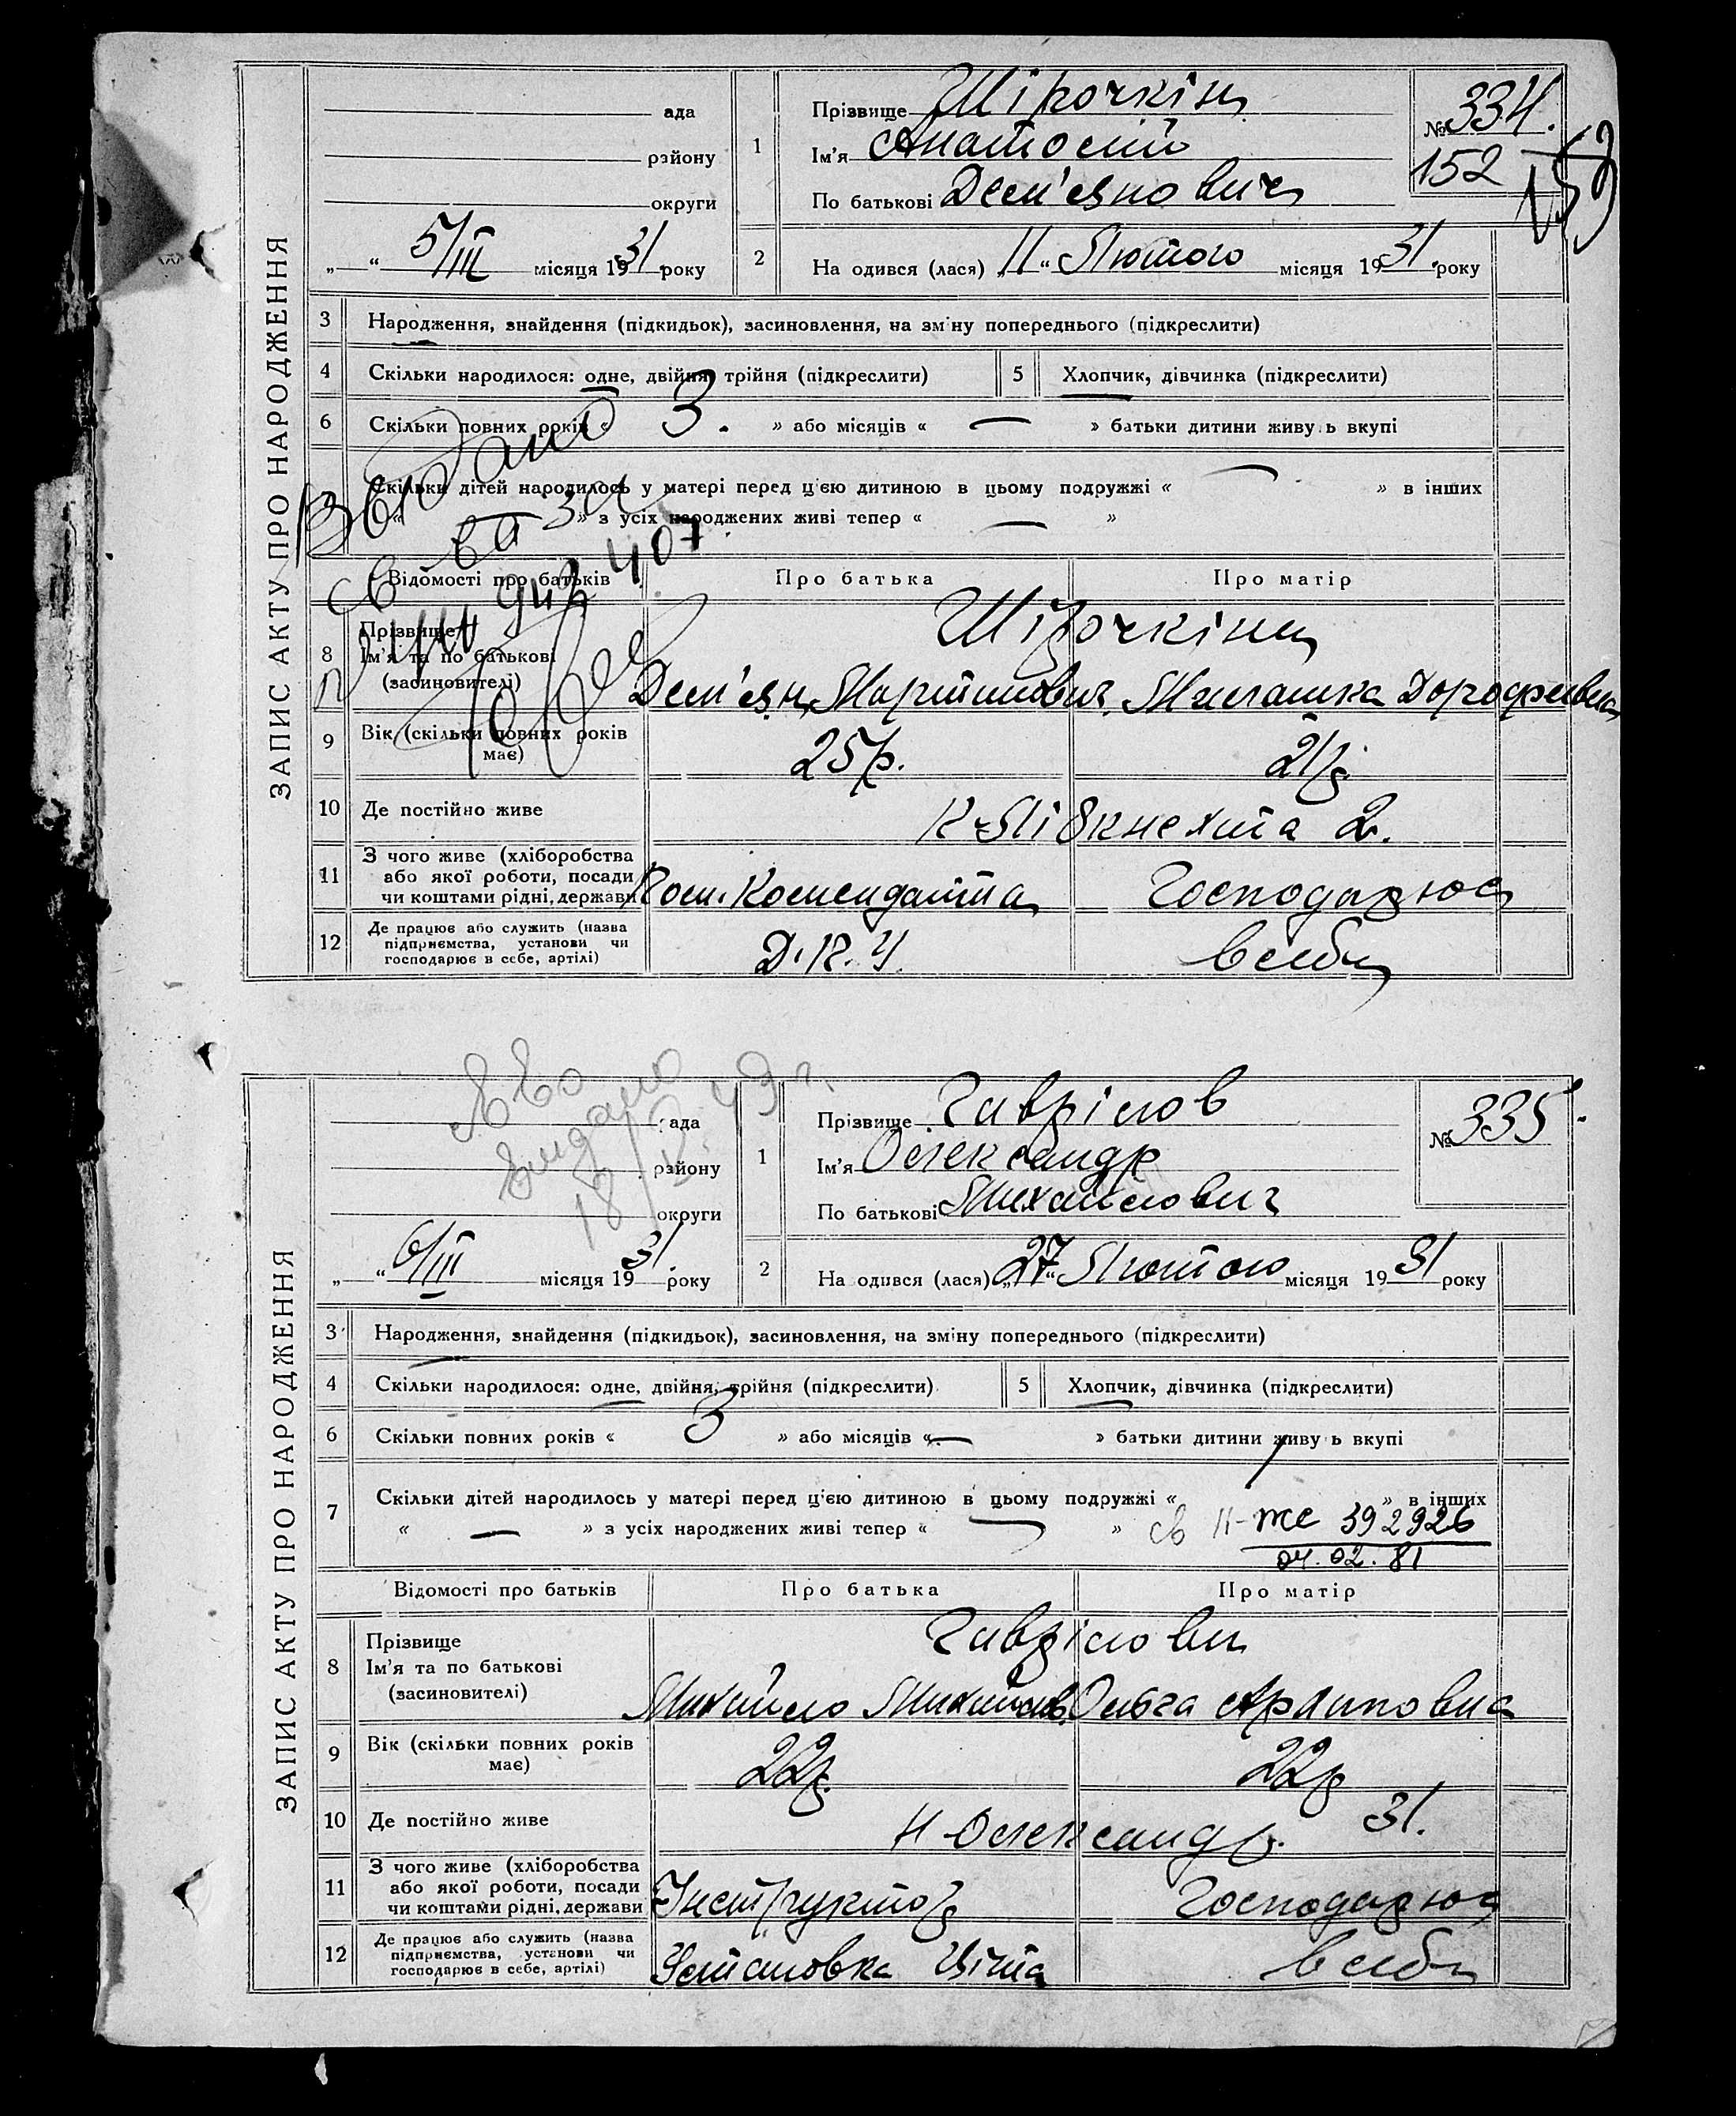 ЗАПИС АКТУ ПРО НАРОДЖЕННЯ
ада
району
округи
„ “ 5/III місяця 1931 року
1 Прізвище Шірочкін
Ім'я Анатолій
По батькові Дем'янович
№ 334.
152
2 На одився (лася) „11“ Лютого місяця 1931. року
3 Народження, знайдення (підкидьок), засиновлення, на зміну попереднього (підкреслити)
4 Скільки народилося: одне, двійня, трійня (підкреслити)
5 Хлопчик, дівчинка (підкреслити)
6 Скільки повних років « 3. » або місяців « — » батьки дитини живуть вкупі
7 Скільки дітей народилось у матері перед цією дитиною в цьому подружжі « — » в інших
« — » з усіх народжених живі тепер « — »
Відомості про батьків Про батька Про матір
8 Прізвище
Ім'я та по батькові
(засиновителі)
Шірочкіни
Дем'ян Мартинович Милашка Дорофеевна
9 Вік (скільки повних років має) 25р. 21р.
10 Де постійно живе К-Лібкнехта 2.
11 З чого живе (хліборобства або якої роботи, посади чи коштами рідні, держави Пом. Коменданта Господарює
12 Де працює або служить (назва підприємства, установи чи господарює в себе, артілі) Д.К.У. в себе
ЗАПИС АКТУ ПРО НАРОДЖЕННЯ
видано
ада
району
округи
„ “ 6/III місяця 1931. року
1 Прізвище Гаврілов
Ім'я Олександр
По батькові Михайлович
№ 335.
2 На одився (лася) „27“ Лютого місяця 1931 року
3 Народження, знайдення (підкидьок), засиновлення, на зміну попереднього (підкреслити)
4 Скільки народилося: одне, двійня, трійня (підкреслити)
5 Хлопчик, дівчинка (підкреслити)
6 Скільки повних років « 3 » або місяців « — » батьки дитини живу ь вкупі
7 Скільки дітей народилось у матері перед цією дитиною в цьому подружжі « » в інших
« — » з усіх народжених живі тепер « — »
св II-ЖС 392926
04.02.81
Відомості про батьків Про батька Про матір
8 Прізвище
Ім'я та по батькові
(засиновителі)
Гаврілови
Михайло Михайлов. Ольга Архиповна
9 Вік (скільки повних років має) 22р. 22р
10 Де постійно живе Н Олександр. 31.
11 З чого живе (хліборобства або якої роботи, посади чи коштами рідні, держави Інструктор Господарює
12 Де працює або служить (назва підприємства, установи чи господарює в себе, артілі) Установка Ціта в себе